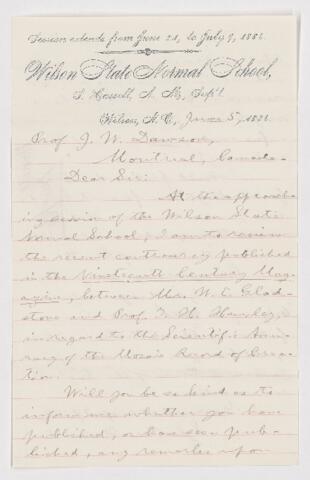 Session extends from June 21, to July 9, 1886.
Wilson State Normal School,
Wilson, N.C., June 5, 1886.
Prof. J. W. Dawson,
Montreal, Canada.
Dear Sir:
At the approach-
ing session of the Wilson State
Normal School, I am to review
the recent controversy published
in the Nineteenth Century Mag-
azine, between Mr. W. E. Glad-
stone and Prof. T. H. Huxley,
in regard to the Scientific Accu-
racy of the Mosaic Record of Crea-
tion.
Will you be so kind as to
inform me whether you have
published, or have seen pub-
lished, any remarks upon